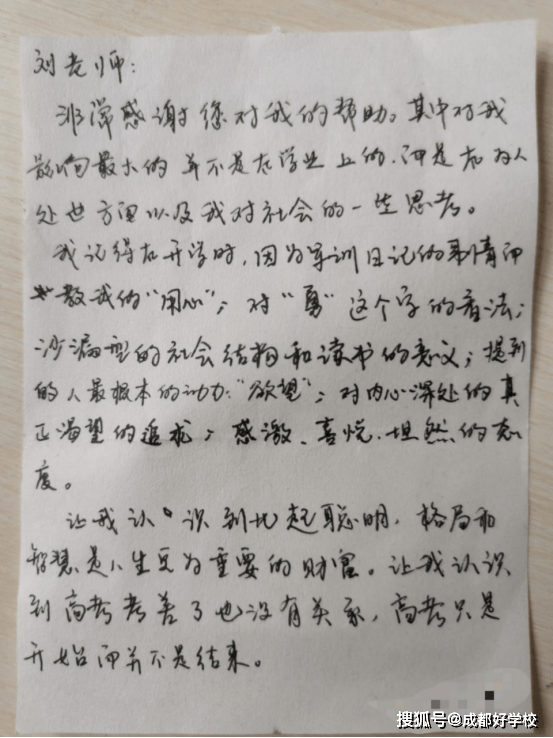 刘老师：
非常感谢您对我的帮助。其中对我
影响最大的并不是在学业上的，而是在为人
处世方面以及我对社会的一些思考。
我记得在开学时，因为军训日记的事情而
教我的“用心”；对“勇”这个字的看法；
沙漏型的社会结构和读书的意义；提到
的人最根本的动力：“欲望”；对内心深处的真
正渴望的追求；感激、喜悦、坦然的态
度。
让我认识到比起聪明，格局和
智慧是人生更为重要的财富。让我认识
到高考考差了也没有关系，高考只是
开始而并不是结束。
搜狐号@成都好学校